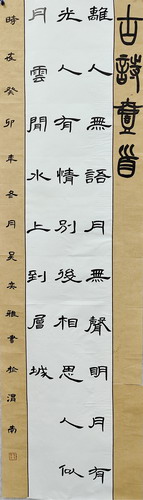 古詩壹首
離人無語月無聲明月有
光人有情別後相思人似
月雲間水上到層城
時在癸卯末冬月吴奕雅書於渭南